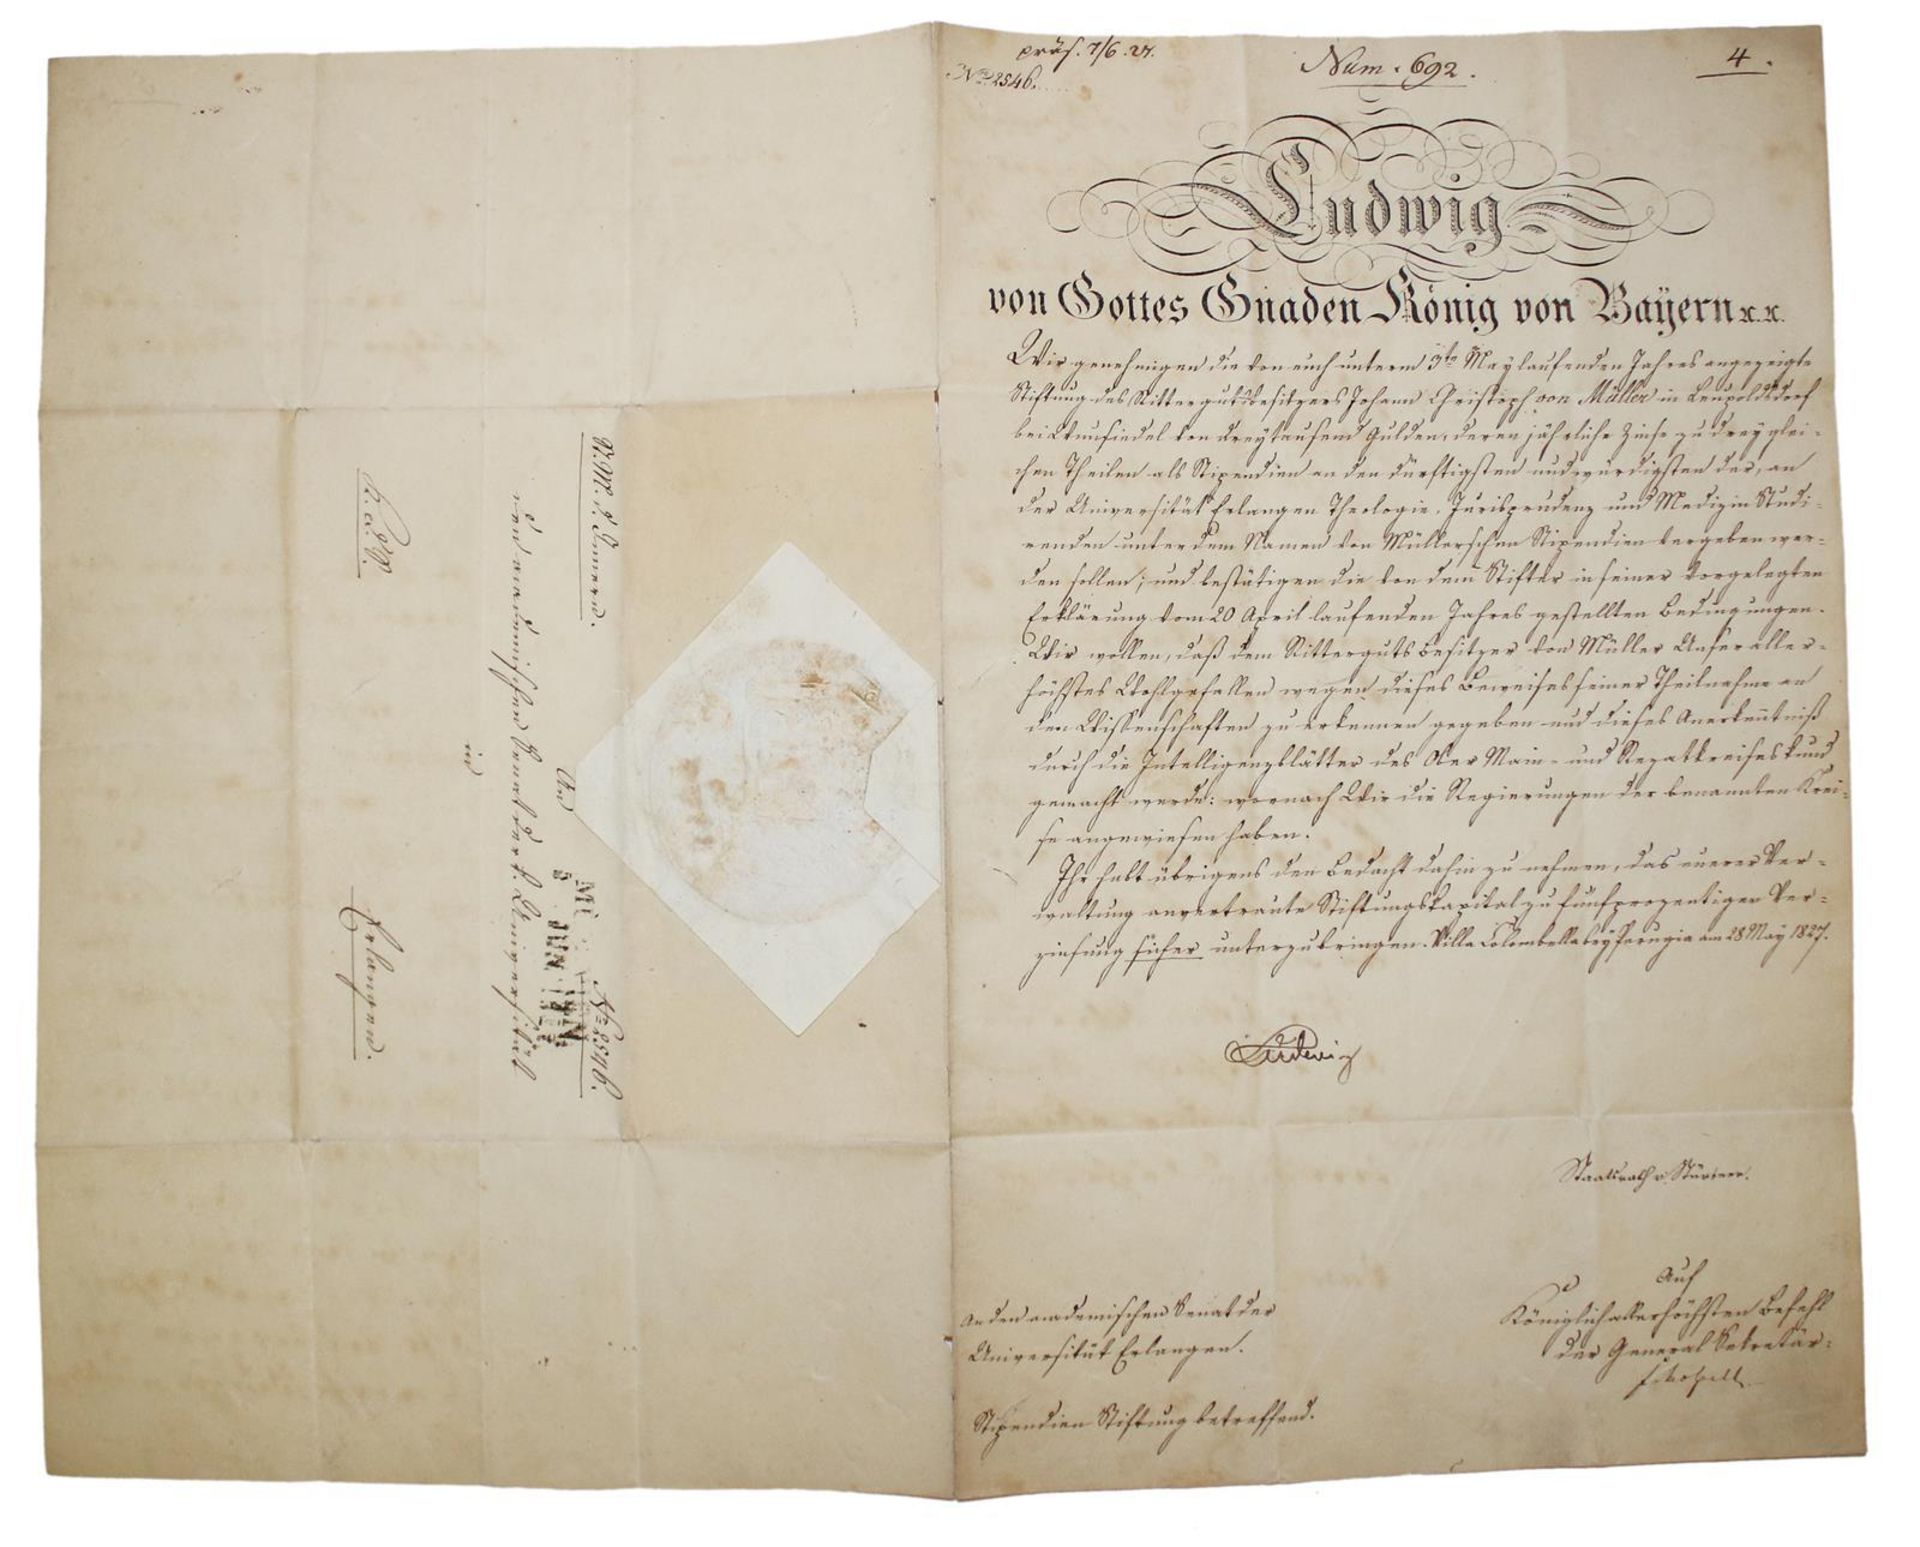 präs. 7/6. 27.
No. 2546.
Num. 692.
4.
Ludwig
von Gottes Gnaden König von Bayern x. x.
Wir genehmigen die von euch unterm 3ten May laufenden Jahres angezeigte
Stiftung des Rittergutsbesitzers Johann Christoph von Müller in Leupoldsdorf
bei Wunsiedel von dreytausend Gulden, deren jährliche Zinse zu drey glei-
chen Theilen als Stipendien an den dürftigsten und würdigsten der, an
der Universität Erlangen Theologie, Jurisprudenz und Medizin Studi-
renden unter dem Namen von Müllerschen Stipendien vergeben wer-
den sollen; und bestätigen die von dem Stifter in seiner vorgelegten
Erklärung vom 20 April laufenden Jahres gestellten Bedingungen.
Wir wollen, daß dem Rittergutsbesitzer von Müller Unser aller-
höchstes Wohlgefallen wegen dieses Beweises seiner Theilnahme an
den Wissenschaften zu erkennen gegeben und dieses Anerkenntniß
durch die Intelligenzblätter des Ober Main- und Rezatkreises kund
gemacht werde: wornach Wir die Regierungen der benannten Krei-
se angewiesen haben.
Ihr habt übrigens den Bedacht dahin zu nehmen, das eurer Ver-
waltung anvertraute Stiftungskapital zu fünfprozentiger Ver-
zinsung sicher unterzubringen. Villa Colombella bey Perugia am 28 May 1827.
Ludwig
Staatsrath v. Stürmer.
Auf
Königlich allerhöchsten Befehl
der General Sekretär:
An den academischen Senat der
Universität Erlangen.
Stipendien Stiftung betreffend.
No. 2546.
An
den academischen Senat der k. Universität
in
Erlangen.